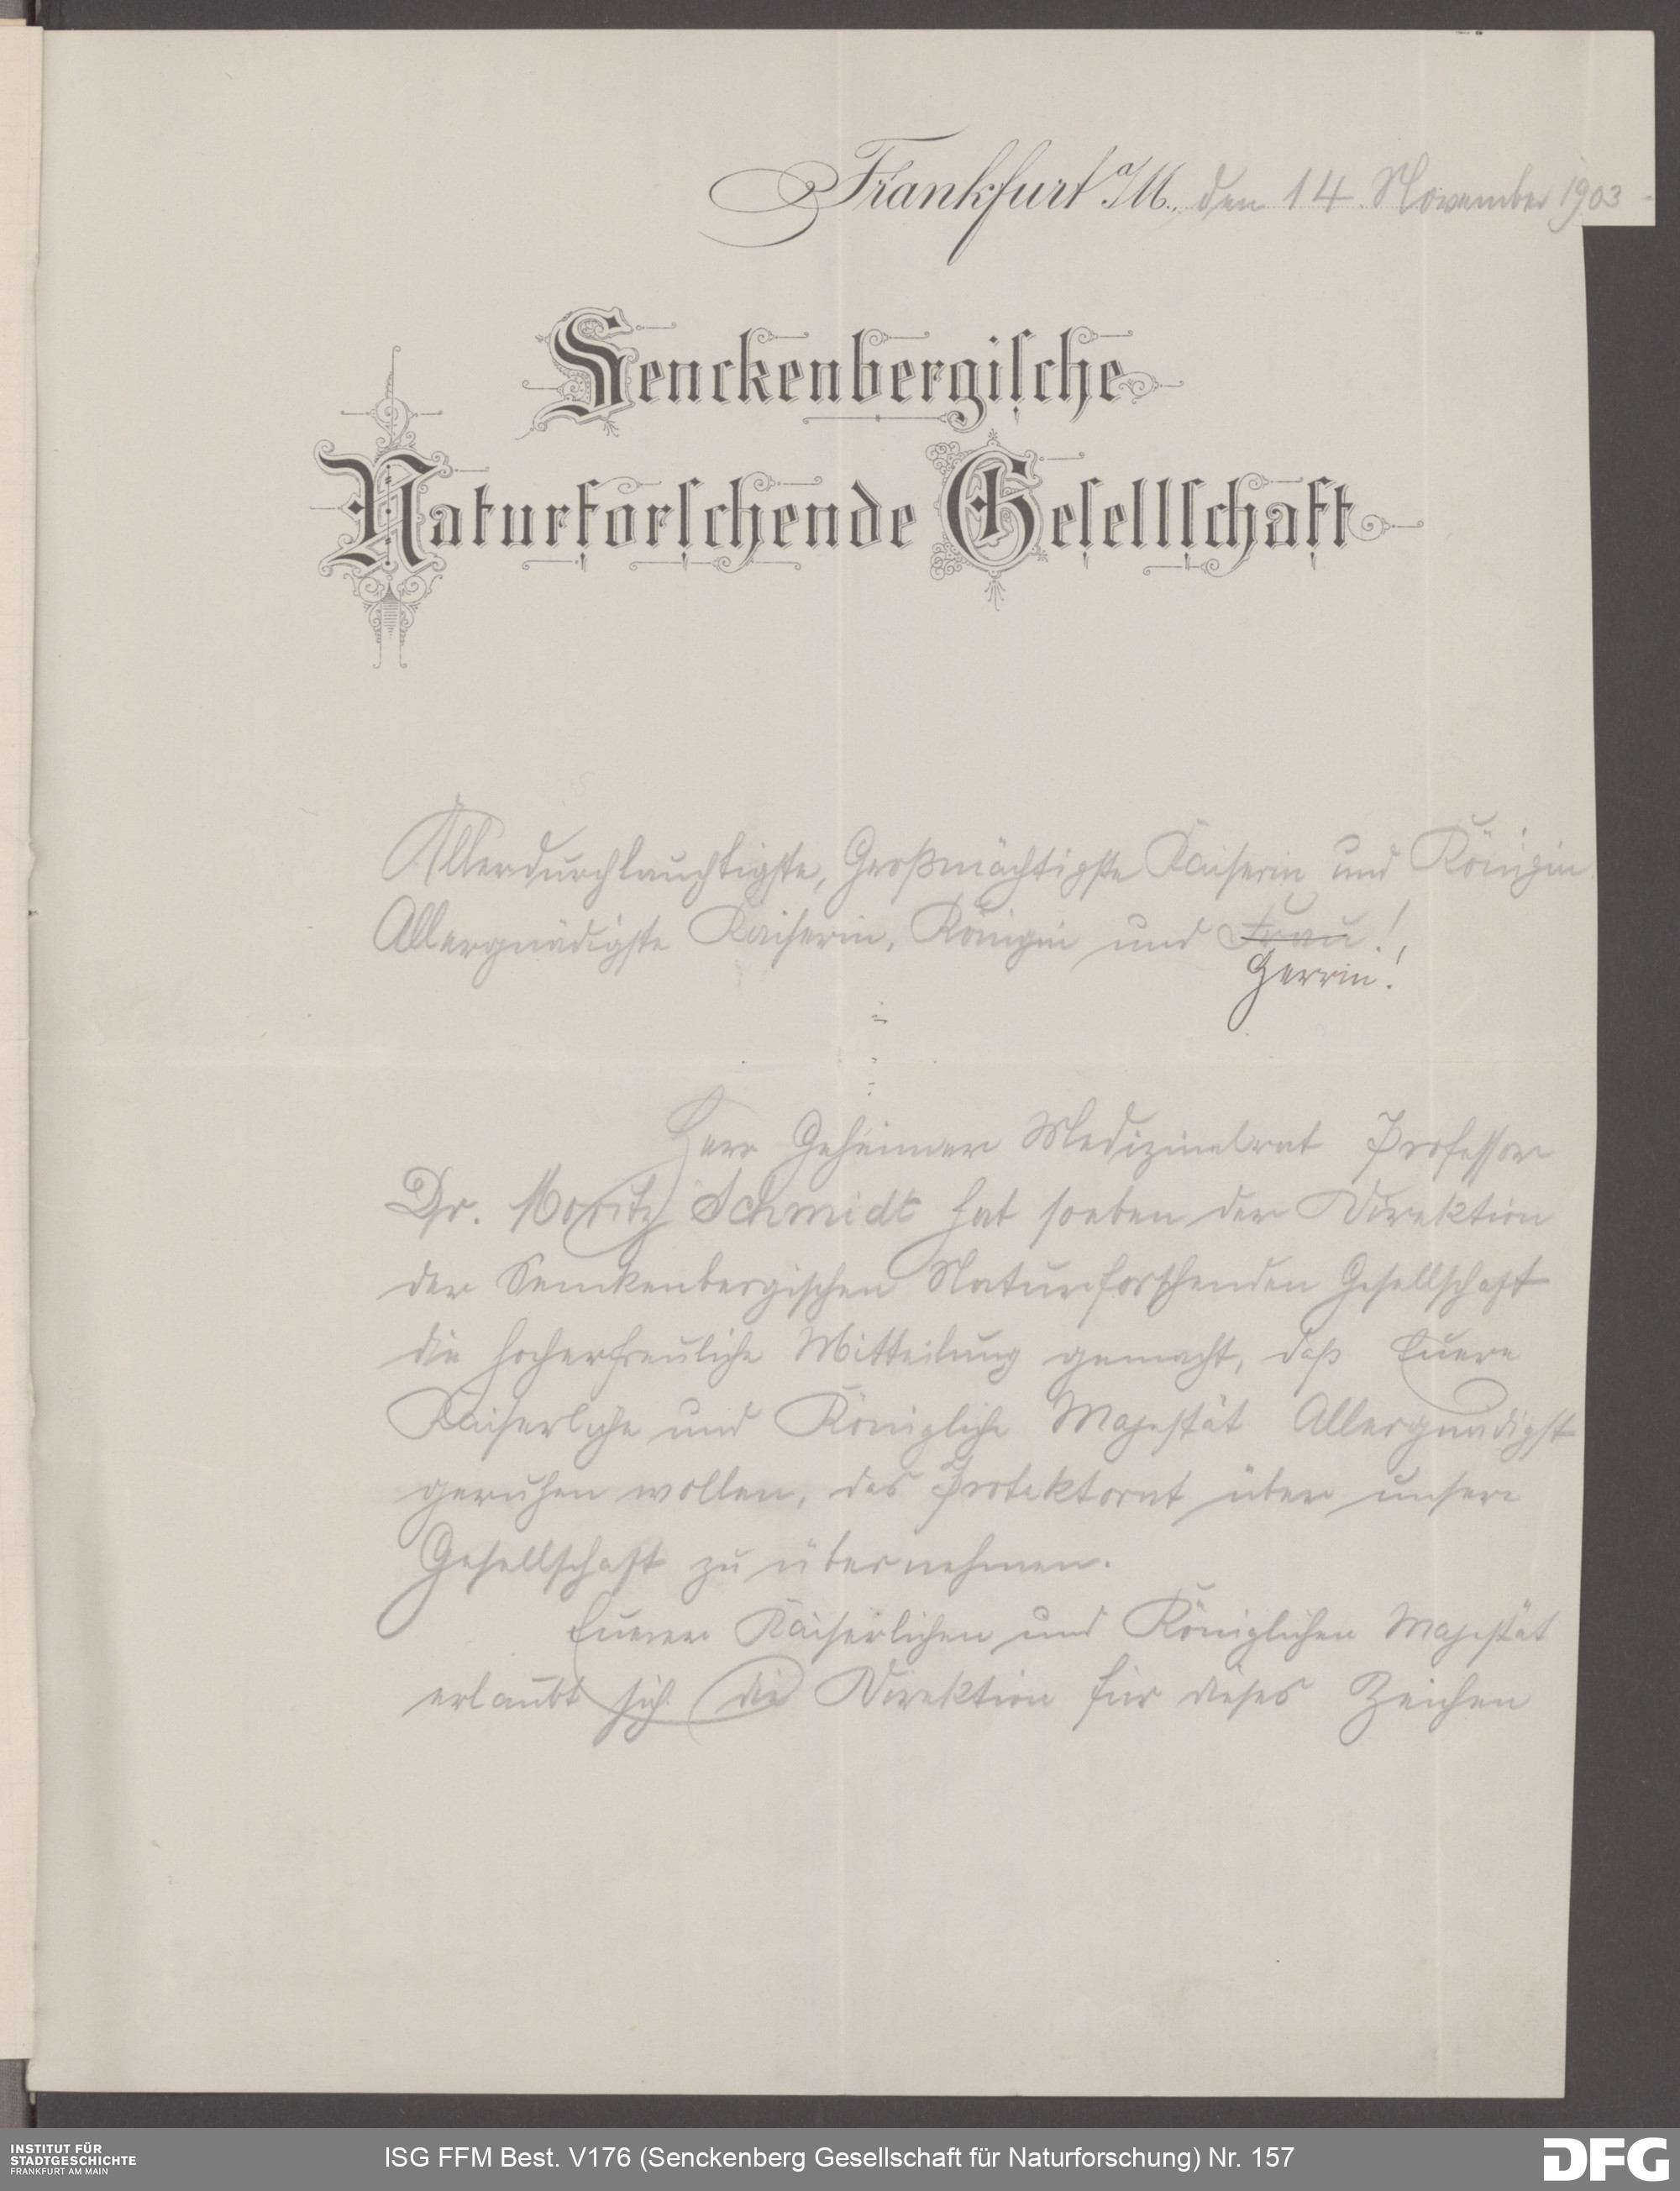 Frankfurt a/M., den 14. November 1903
Senckenbergische
Naturforschende Gesellschaft
Allerdurchlauchtigste, Großmächtigste Kaiserin und Königin
Allergnädigste Kaiserin, Königin und Frau!,
Herrin!
Herr Geheimer Medizinalrat Professor
Dr. Moritz Schmidt hat soeben der Direktion
der Senckenbergischen Naturforschenden Gesellschaft
die hocherfreuliche Mitteilung gemacht, daß Euere
Kaiserliche und Königliche Majestät Allergnädigst
geruhen wollen, das Protektorat über unsere
Gesellschaft zu übernehmen.
Euerer Kaiserlichen und Königlichen Majestät
erlaubt sich die Direktion für dieses Zeichen
INSTITUT FÜR
STADTGESCHICHTE
FRANKFURT AM MAIN
ISG FFM Best. V176 (Senckenberg Gesellschaft für Naturforschung) Nr. 157
DFG